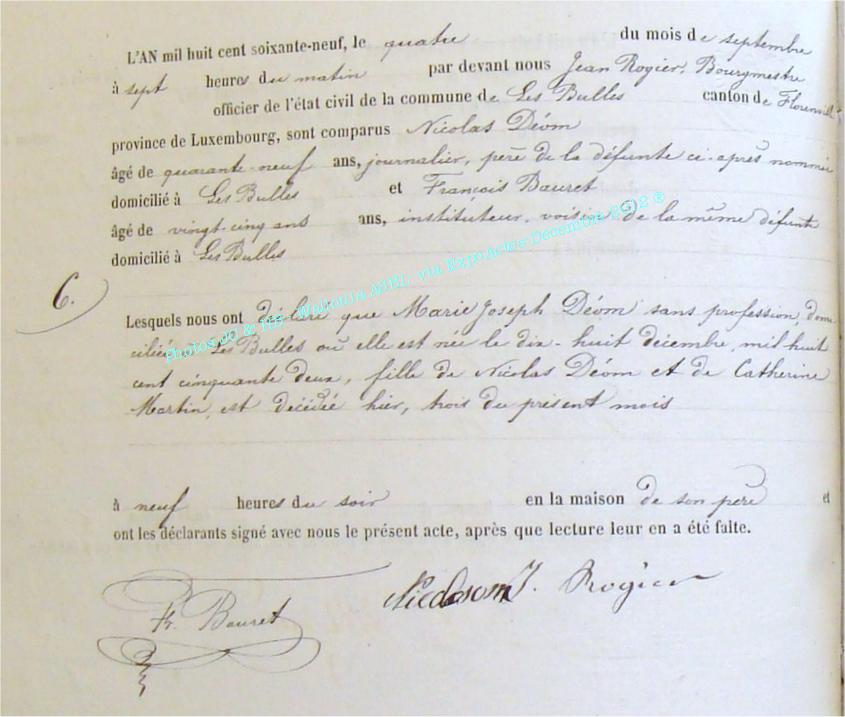 L'AN mil huit cent soixante-neuf, le quatre du mois de septembre
à sept heures du matin par devant nous Jean Rogier, Bourgmestre
officier de l'état civil de la commune de Les Bulles canton de Florenville
province de Luxembourg, sont comparus Nicolas Déom
âgé de quarante-neuf ans, journalier, père de la défunte ci-après nommée
domicilié à Les Bulles et François Bauret
âgé de vingt-cinq ans ans, instituteur, voisin de la même défunte
domicilié à Les Bulles
6.
Lesquels nous ont déclaré que Marie Joseph Déom sans profession, domi
ciliée à Les Bulles où elle est née le dix-huit décembre, mil huit
cent cinquante deux, fille de Nicolas Déom et de Catherine
Martin, est décédée hier, trois du présent mois
à neuf heures du soir en la maison de son père et
ont les déclarants signé avec nous le présent acte, après que lecture leur en a été faite.
Fr. Bauret J. Rogier
Photos JC & HB - Wallonia ASBL via ExpoActes Décembre 2012 ®